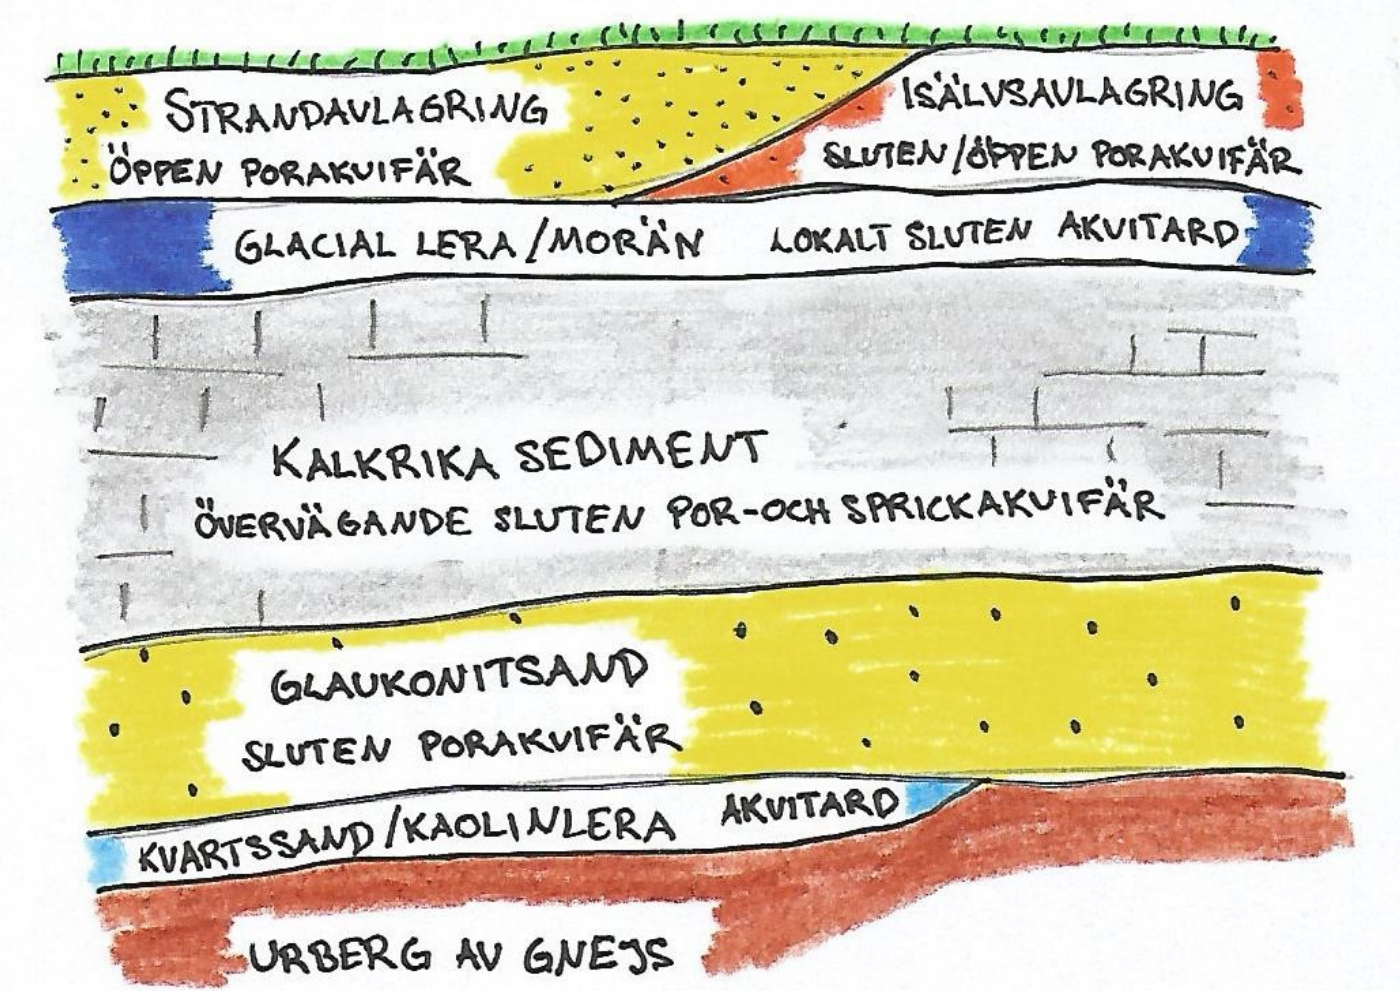 STRANDAVLAGRING
ÖPPEN PORAKVIFÄR
ISÄLVSAVLAGRING
SLUTEN/ÖPPEN PORAKVIFÄR
GLACIAL LERA/MORÄN LOKALT SLUTEN AKVITARD
KALKRIKA SEDIMENT
ÖVERVÄGANDE SLUTEN POR-OCH SPRICKAKVIFÄR
GLAUKONITSAND
SLUTEN PORAKVIFÄR
KVARTSSAND/KAOLINLERA AKVITARD
URBERG AV GNEJS